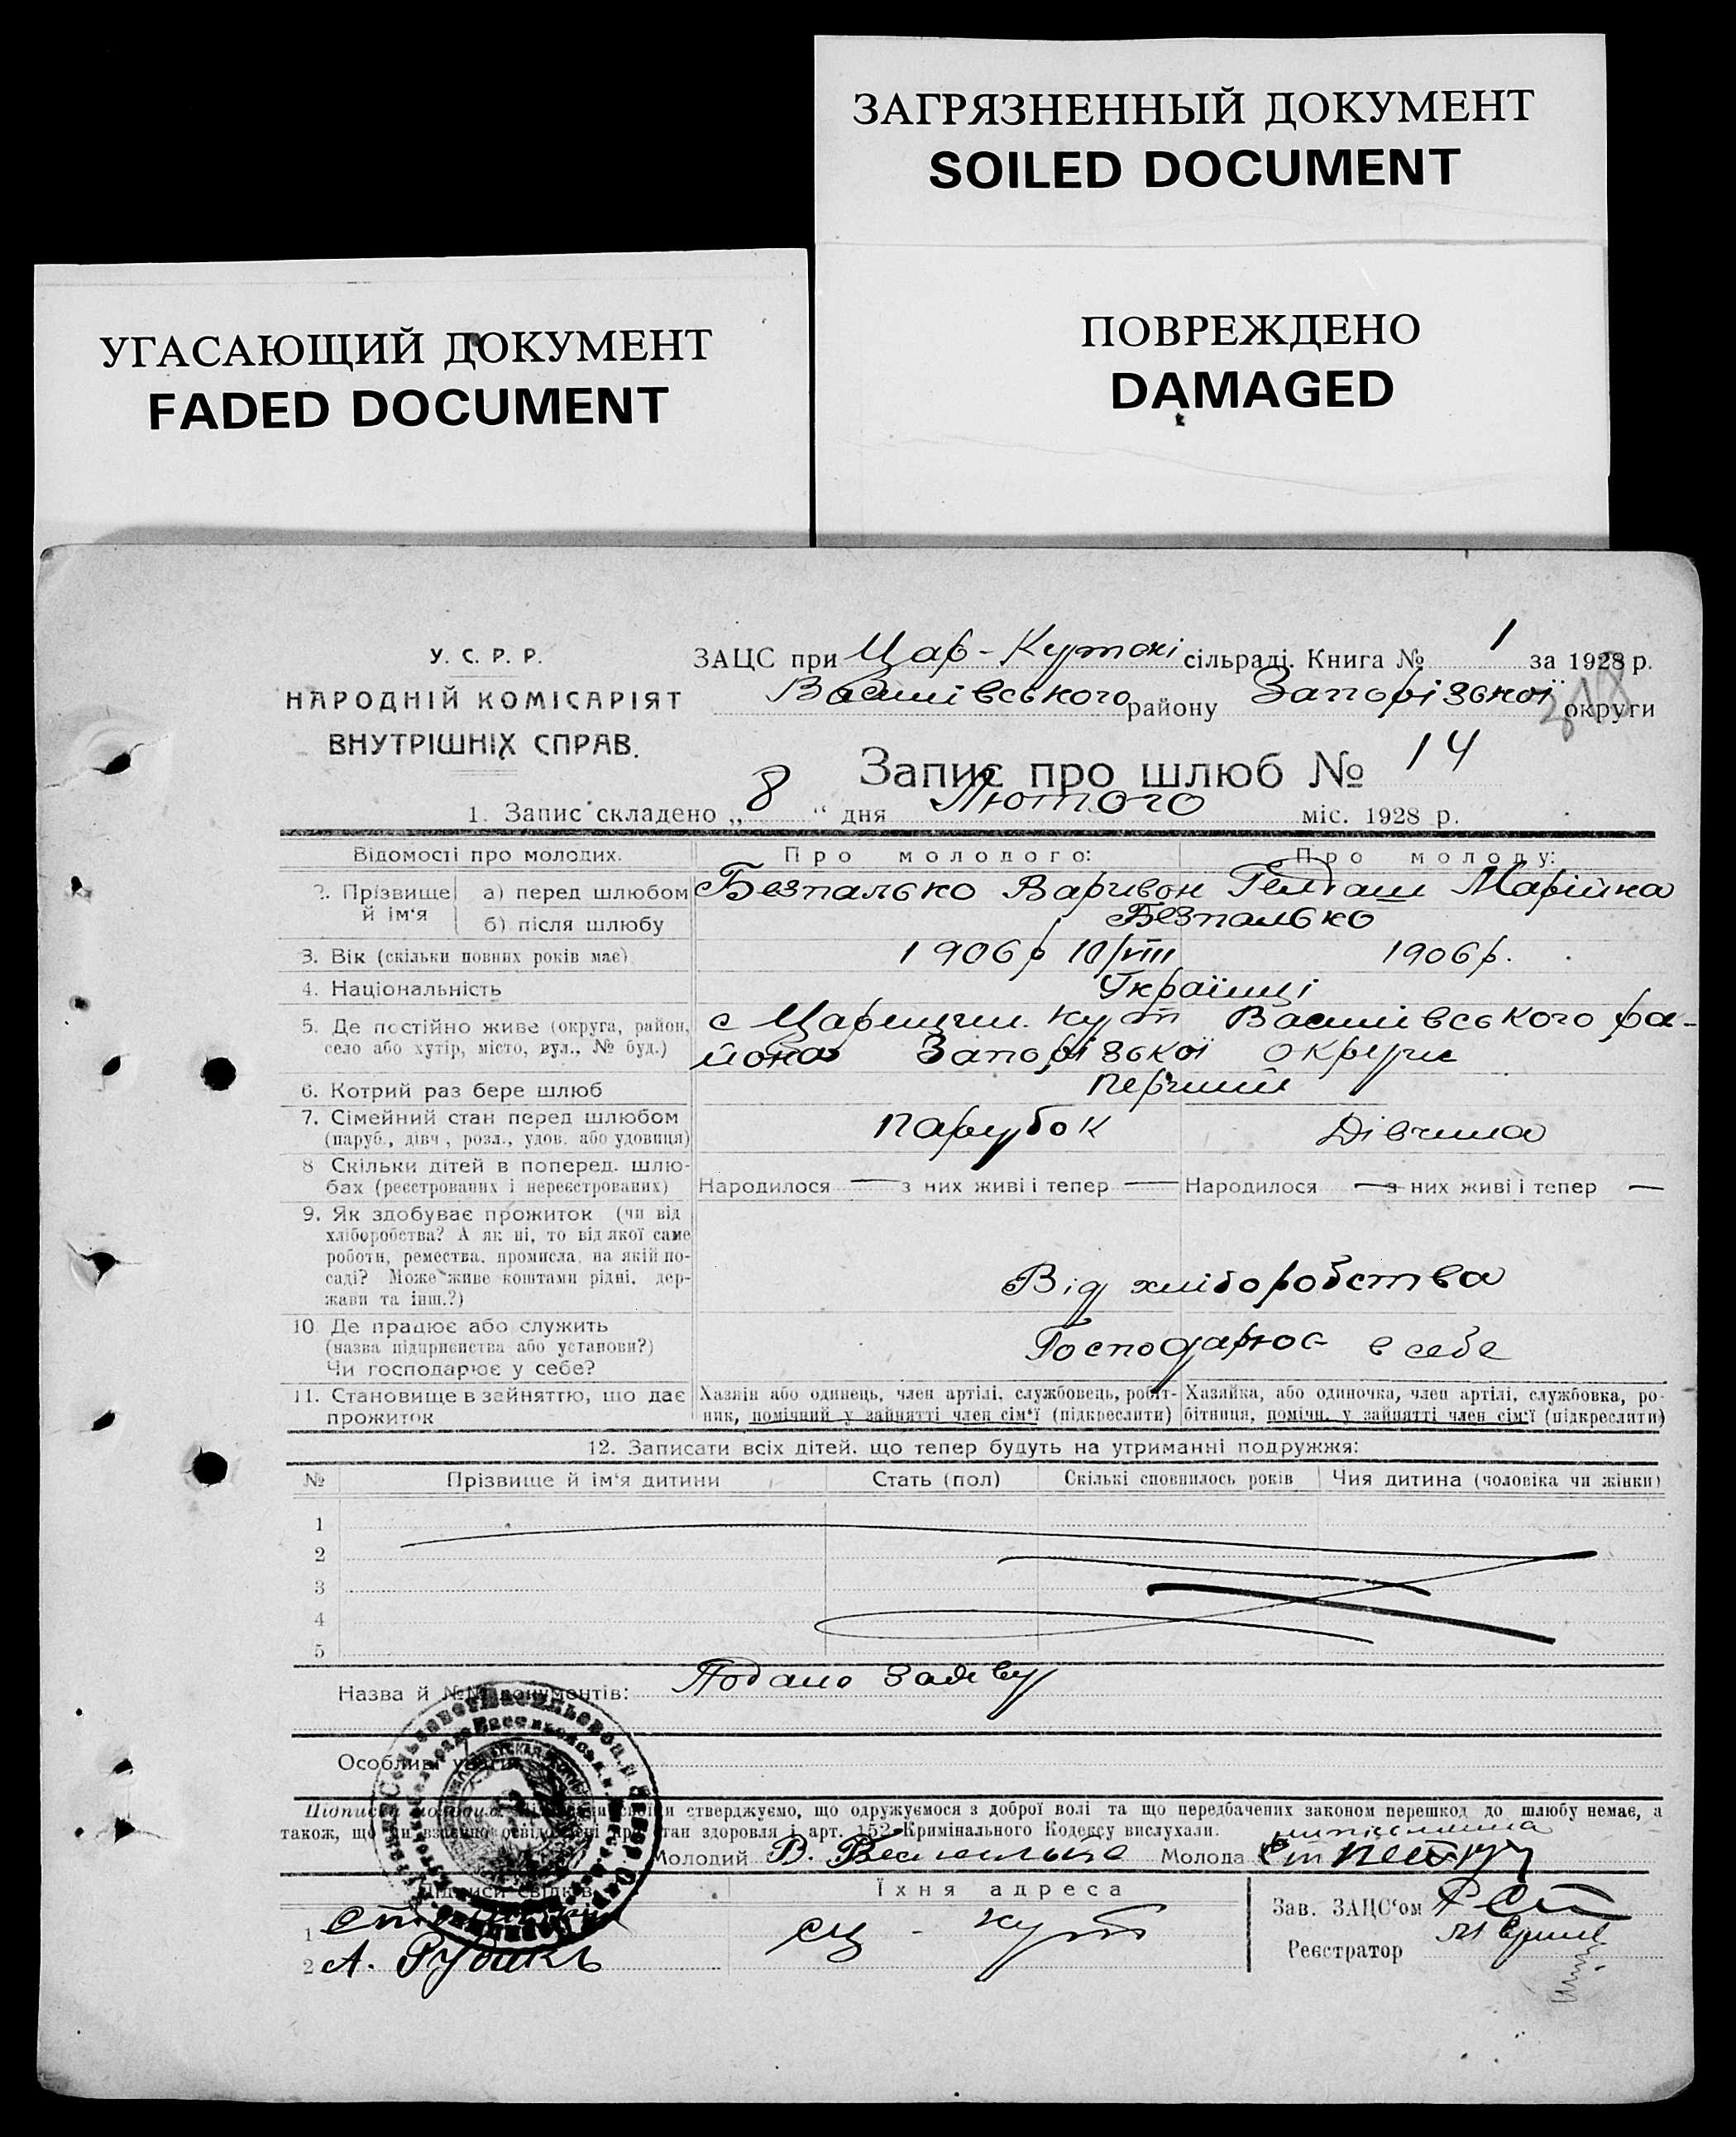 ЗАГРЯЗНЕННЫЙ ДОКУМЕНТ
SOILED DOCUMENT
ПОВРЕЖДЕНО
DAMAGED
УГАСАЮЩИЙ ДОКУМЕНТ
FADED DOCUMENT
У. С. Р. Р.
НАРОДНІЙ КОМІСАРІЯТ
ВНУТРІШНІХ СПРАВ.
ЗАЦС при Цар-Кутокі сільраді. Книга № 1 за 1928 р.
Василівського району Запорізької округи
Запис про шлюб № 14
1. Запис складено „ 8 “ дня Лютого міс. 1928 р.
Відомості про молодих. Про молодого: Про молоду:
2. Прізвище й ім‘я а) перед шлюбом Безпалько Варивон Гелдаш Марійка
б) після шлюбу Безпалько
3. Вік (скільки повних років має) 1906р 10/VIII 1906р.
4. Національність Українці
5. Де постійно живе (округа, район, с Царицин. Кут Василівського ра-
село або хутір, місто, вул., № буд.) йона Запорізької округи
6. Котрий раз бере шлюб перший
7. Сімейний стан перед шлюбом парубок Дівчина
(паруб., дівч., розл., удов. або удовиця)
8 Скільки дітей в поперед. шлю-
бах (реєстрованих і нереєстрованих) Народилося — з них живі і тепер — Народилося — з них живі і тепер —
9. Як здобуває прожиток (чи від
хліборобства? А як ні, то від якої саме
роботи, ремества, промисла, на якій по-
саді? Може живе коштами рідні, дер-
жави та інш.?) Від хліборобства
10. Де працює або служить
(назва підприємства або установи?) Господарює в себе
Чи господарює у себе?
11. Становище в зайняттю, що дає Хазяїн або одинець, член артілі, службовець, робіт- Хазяйка, або одиночка, член артілі, службовка, ро-
прожиток ник, помічний у зайнятті член сім‘ї (підкреслити) бітниця, помічн. у зайнятті член сім‘ї (підкреслити)
12. Записати всіх дітей, що тепер будуть на утриманні подружжя:
№ Прізвище й ім‘я дитини Стать (пол) Скількі сповнилось років Чия дитина (чоловіка чи жінки)
1
2
3
4
5
Назва й №№ документів: Подано заяву
Особливі уваги
Підписи молодих. стверджуємо, що одружуємося з доброї волі та що передбачених законом перешкод до шлюбу немає, а
також, що ми взаємно освідомлені про стан здоровля і арт. 152 Кримінального Кодексу вислухали.
Молодий В. Молода
Підписи свідків Їхня адреса
1 сц - кут Зав. ЗАЦС‘ом
2 А. Рудикъ Реєстратор